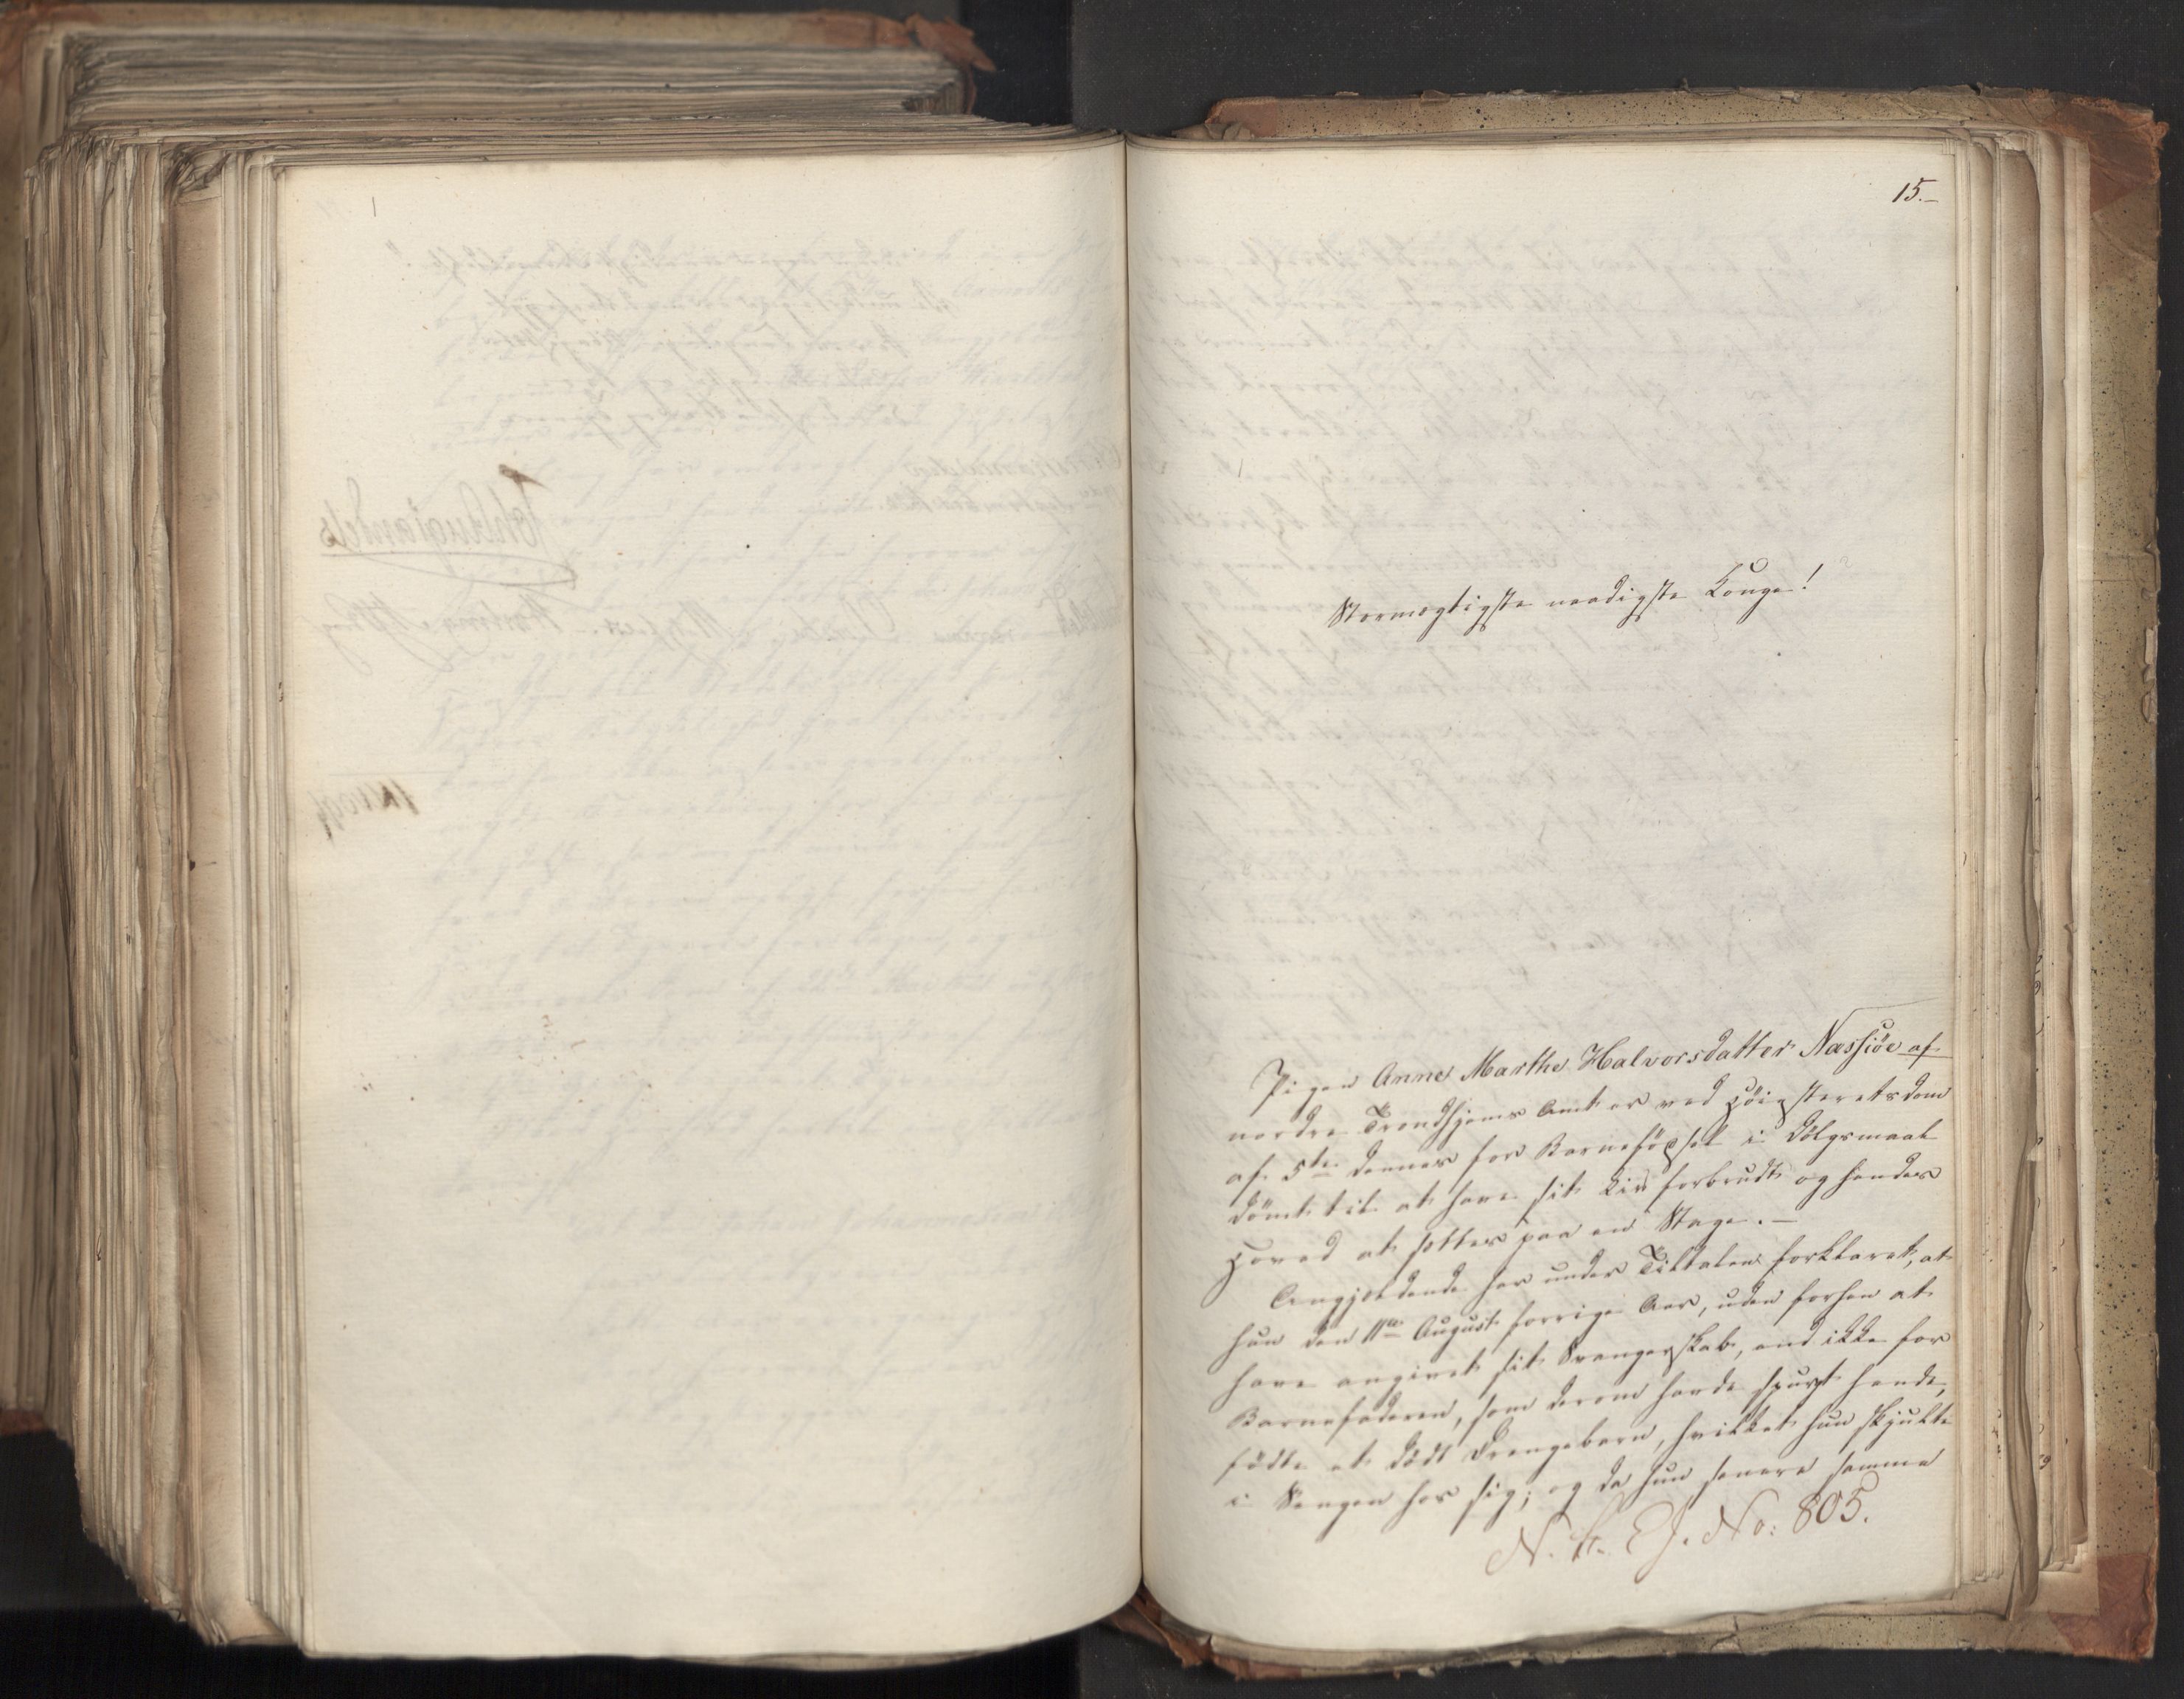 15.–
Stormægtigste naadigste Konge!
Pigen Anne Marthe Halvorsdatter Næssiöe af
nordre Trondhjems Amt er ved Höiesteretsdom
af 5te dennes for Barnefødsel i Dölgsmaal
dömt til at have sit Liv forbrudt og hendes
Hoved at sættes paa en Stage. –
Angjældende har under Tiltalen forklaret, at
hun den 11te August forrige Aar, uden forhen at
have angivet sit Svangerskab, end ikke for
Barnefaderen, som derom havde spurgt hende,
födte et dödt Drengebarn, hvilket hun skjulte
i Sengen hos sig; og da hun senere samme
No: 805.